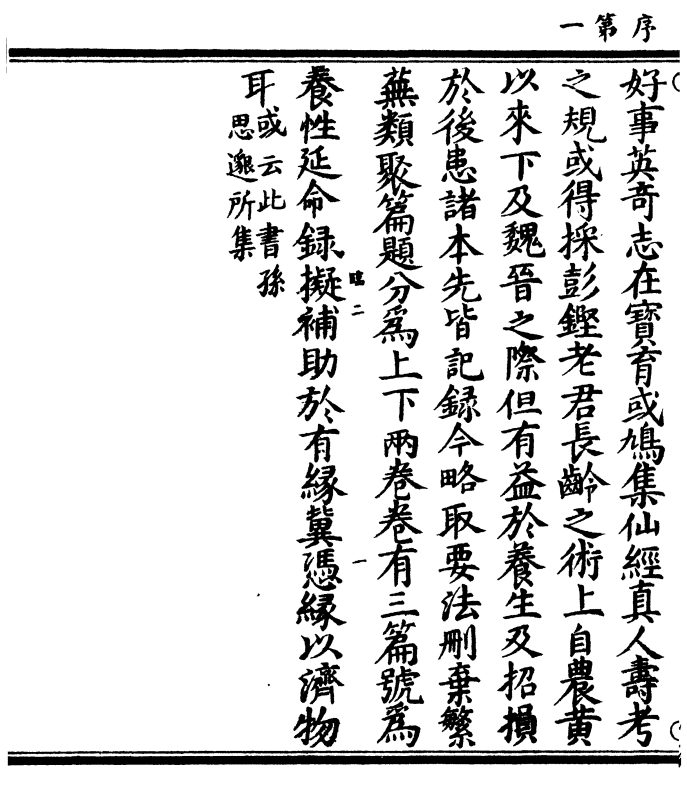 序第一
好事英奇志在寶育或鳩集仙經真人壽考
之規或得採彭鏗老君長齡之術上自農黃
以來下及魏晉之際但有益於養生及招損
於後患諸本先皆記錄今略取要法刪棄繁
蕪類聚篇題分爲上下兩卷卷有三篇號爲
養性延命録擬補助於有縁冀憑縁以濟物
臨二
耳或云此書孫
思邈所集